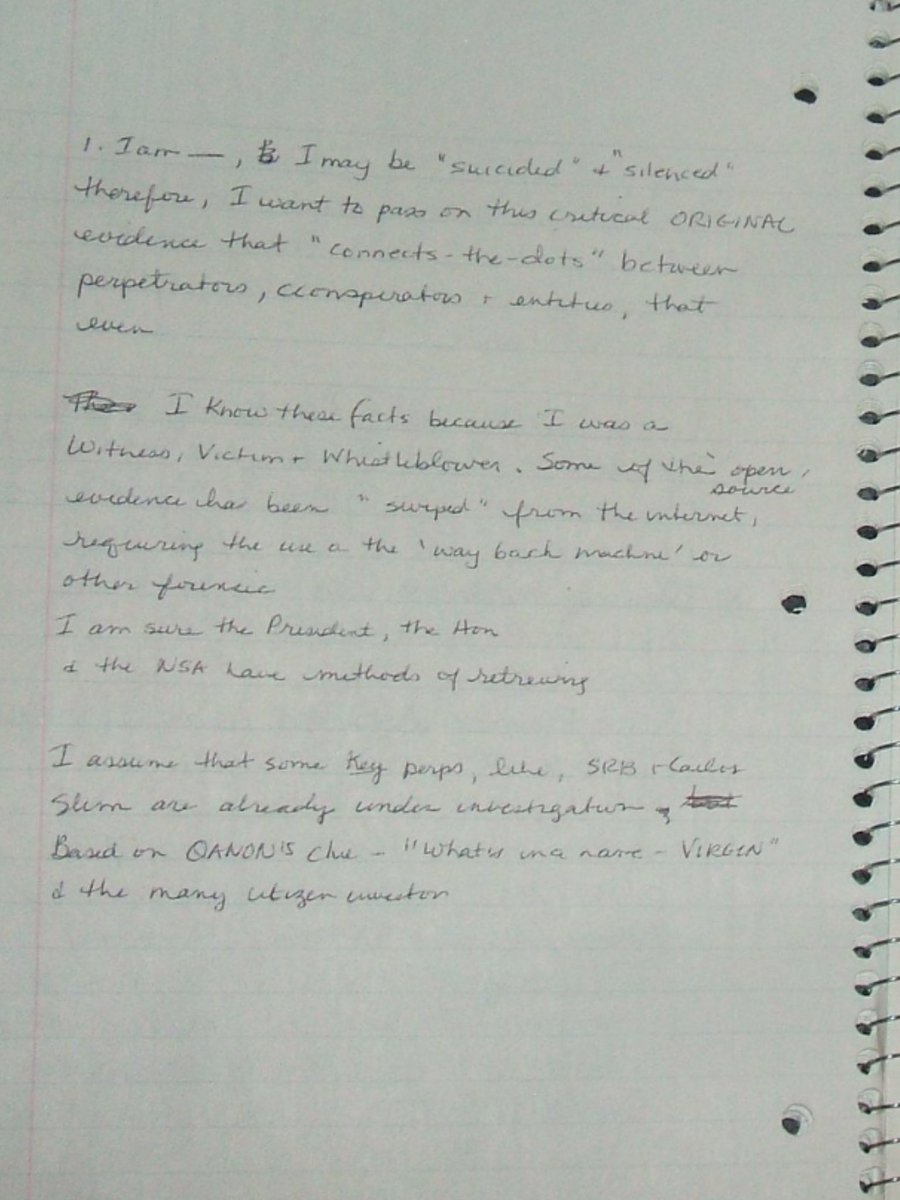 1. I am —, I may be "suicided" & "silenced"
therefore, I want to pass on this critical ORIGINAL
evidence that "connects-the-dots" between
perpetrators, cconspirators + entities, that
even
I know these facts because I was a
Witness, Victim + Whistleblower. Some of the open
source
evidence has been "swiped" from the internet,
requiring the use a the 'way back machine' or
other forensic
I am sure the President, the Hon
& the NSA have methods of retreiving
I assume that some Key perps, like, SRB + Carlos
Slim are already under investigation,
Based on QANON'S clue - "What's in a name - VIRGIN"
& the many citizen